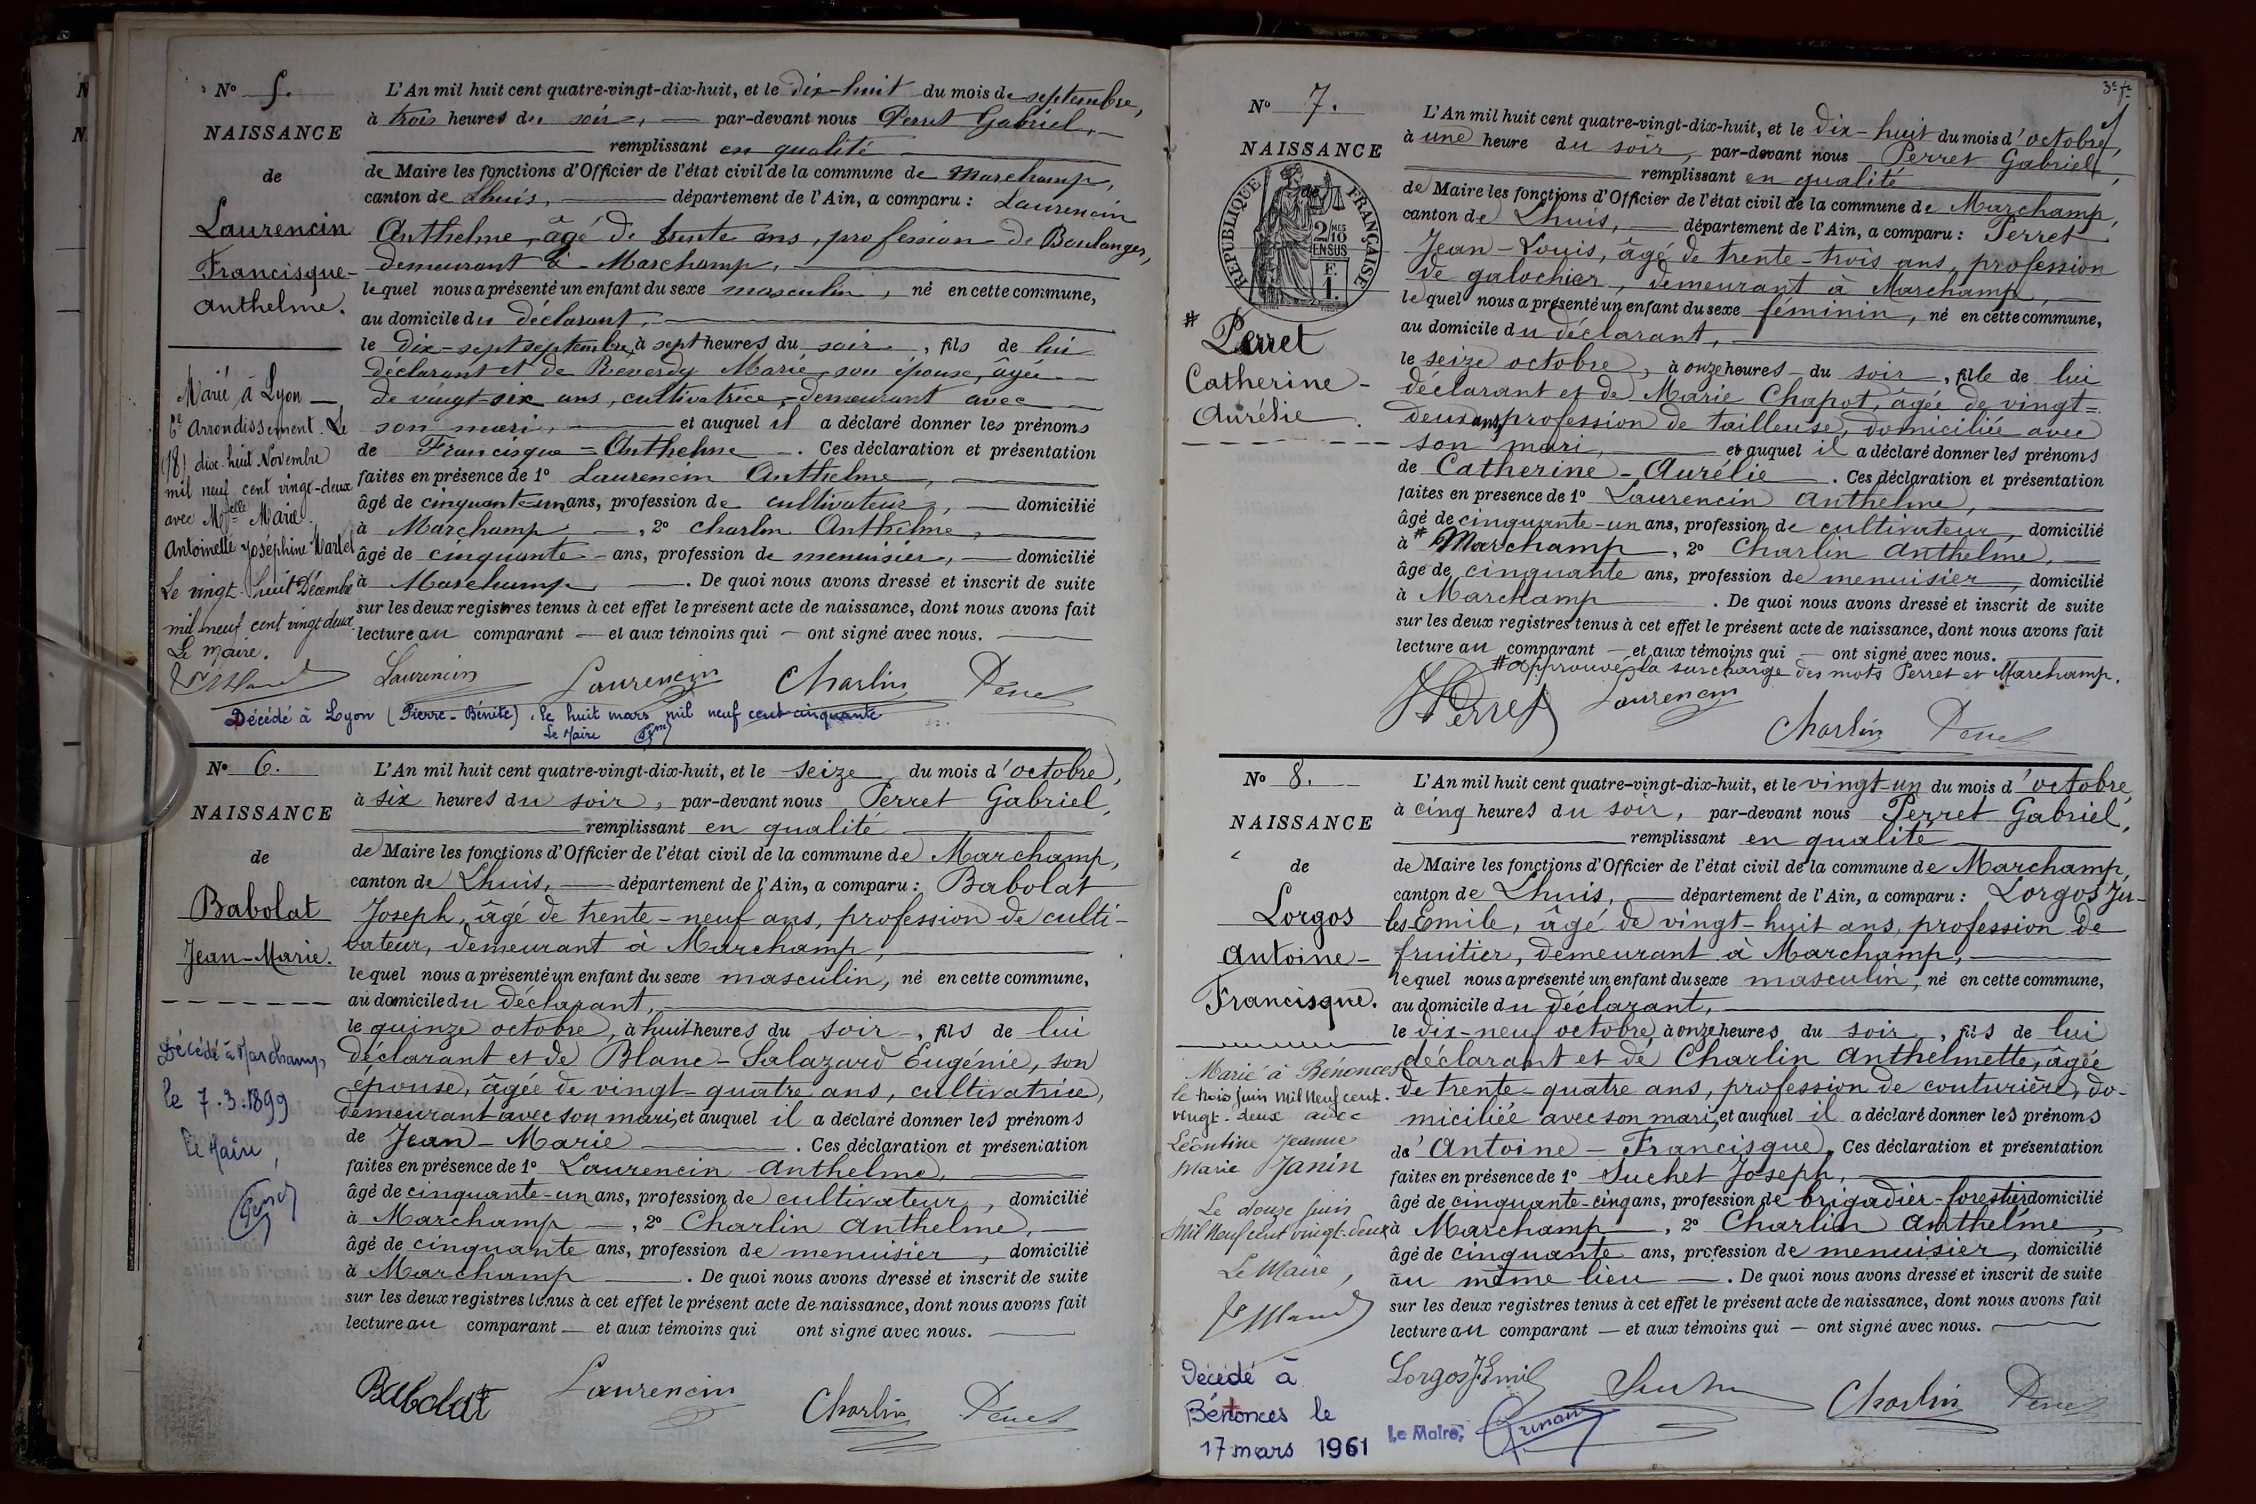 N° 5.
NAISSANCE
de
Laurencin
Francisque-
Anthelme.
Marié à Lyon —
6e Arrondissement. Le
(18) dix-huit Novembre
mil neuf cent vingt-deux
avec Melle Marie
Antoinette Joséphine Martel
Le vingt-huit Décembre
mil neuf cent vingt deux.
Le Maire.
L'An mil huit cent quatre-vingt-dix-huit, et le dix-huit du mois de septembre,
à trois heures du soir, — par-devant nous Perret Gabriel,
remplissant en qualité
de Maire les fonctions d'Officier de l'état civil de la commune de Marchamp,
canton de Lhuis, — département de l'Ain, a comparu : Laurencin
Anthelme, âgé de trente ans, profession de Boulanger,
demeurant à Marchamp,
lequel nous a présenté un enfant du sexe masculin, né en cette commune,
au domicile du déclarant,
le dix-sept septembre, à sept heures du soir, fils de lui
déclarant et de Reverdy Marie, son épouse, âgée
de vingt-six ans, cultivatrice, demeurant avec
son mari, — et auquel il a déclaré donner les prénoms
de Francisque = Anthelme —. Ces déclaration et présentation
faites en présence de 1° Laurencin Anthelme,
âgé de cinquante-un ans, profession de cultivateur, — domicilié
à Marchamp —, 2° Charlin Anthelme,
âgé de cinquante - ans, profession de menuisier, — domicilié
à Marchamp —. De quoi nous avons dressé et inscrit de suite
sur les deux registres tenus à cet effet le présent acte de naissance, dont nous avons fait
lecture au comparant — et aux témoins qui — ont signé avec nous.
Laurencin Laurencin Charlin Perret
Décédé à Lyon (Pierre-Bénite), le huit mars mil neuf cent cinquante
Le Maire
N° 6.
NAISSANCE
de
Babolat
Jean-Marie.
Décédé à Marchamp
le 7.3.1899
Le Maire,
L'An mil huit cent quatre-vingt-dix-huit, et le seize du mois d'octobre,
à six heures du soir, par-devant nous Perret Gabriel,
remplissant en qualité
de Maire les fonctions d'Officier de l'état civil de la commune de Marchamp,
canton de Lhuis, — département de l'Ain, a comparu : Babolat
Joseph, âgé de trente-neuf ans, profession de culti-
vateur, demeurant à Marchamp,
lequel nous a présenté un enfant du sexe masculin, né en cette commune,
au domicile du déclarant,
le quinze octobre, à huit heures du soir, fils de lui
déclarant et de Blanc-Salazard Eugénie, son
épouse, âgée de vingt-quatre ans, cultivatrice,
demeurant avec son mari, et auquel il a déclaré donner les prénoms
de Jean-Marie —. Ces déclaration et présentation
faites en présence de 1° Laurencin Anthelme,
âgé de cinquante-un ans, profession de cultivateur, domicilié
à Marchamp —, 2° Charlin Anthelme,
âgé de cinquante ans, profession de menuisier, domicilié
à Marchamp —. De quoi nous avons dressé et inscrit de suite
sur les deux registres tenus à cet effet le présent acte de naissance, dont nous avons fait
lecture au comparant — et aux témoins qui ont signé avec nous.
Babolat Laurencin Charlin Perret
3e ft
N° 7.
NAISSANCE
de
RÉPUBLIQUE FRANÇAISE
2/10 MES
EN SUS
F. 1.
# Perret
Catherine-
Aurélie.
L'An mil huit cent quatre-vingt-dix-huit, et le dix-huit du mois d'octobre,
à une heure du soir, par-devant nous Perret Gabriel,
remplissant en qualité
de Maire les fonctions d'Officier de l'état civil de la commune de Marchamp,
canton de Lhuis, — département de l'Ain, a comparu : Perret
Jean-Louis, âgé de trente-trois ans, profession
de galochier, demeurant à Marchamp,
lequel nous a présenté un enfant du sexe féminin, né en cette commune,
au domicile du déclarant,
le seize octobre, à onze heures - du soir, fille de lui
déclarant et de Marie Chapot, âgée de vingt-
deux ans, profession de tailleuse, domiciliée avec
son mari, — et auquel il a déclaré donner les prénoms
de Catherine-Aurélie —. Ces déclaration et présentation
faites en présence de 1° Laurencin Anthelme,
âgé de cinquante-un ans, profession de cultivateur, domicilié
à # Marchamp —, 2° Charlin Anthelme,
âgé de cinquante ans, profession de menuisier, domicilié
à Marchamp —. De quoi nous avons dressé et inscrit de suite
sur les deux registres tenus à cet effet le présent acte de naissance, dont nous avons fait
lecture au comparant — et aux témoins qui — ont signé avec nous.
# approuvé la surcharge des mots Perret et Marchamp.
Perret Laurencin
Charlin Perret
N° 8.
NAISSANCE
de
Lorgos
Antoine-
Francisque.
Marié à Bénonces
le trois juin mil neuf cent.
vingt-deux avec
Léontine Jeanne
Marie Janin
Le douze juin
Mil neuf cent vingt-deux
Le Maire,
Décédé à
Bénonces le
17 mars 1961
L'An mil huit cent quatre-vingt-dix-huit, et le vingt-un du mois d'octobre,
à cinq heures du soir, par-devant nous Perret Gabriel,
remplissant en qualité
de Maire les fonctions d'Officier de l'état civil de la commune de Marchamp,
canton de Lhuis, — département de l'Ain, a comparu : Lorgos Ju-
les Emile, âgé de vingt-huit ans, profession de
fruitier, demeurant à Marchamp,
lequel nous a présenté un enfant du sexe masculin, né en cette commune,
au domicile du déclarant,
le dix-neuf octobre, à onze heures du soir, fils de lui
déclarant et de Charlin Anthelmette, âgée
de trente-quatre ans, profession de couturière, do-
miciliée avec son mari, et auquel il a déclaré donner les prénoms
d'Antoine-Francisque. Ces déclaration et présentation
faites en présence de 1° Suchet Joseph,
âgé de cinquante-cinq ans, profession de brigadier-forestier domicilié
à Marchamp —, 2° Charlin Anthelme,
âgé de cinquante ans, profession de menuisier, domicilié
au même lieu —. De quoi nous avons dressé et inscrit de suite
sur les deux registres tenus à cet effet le présent acte de naissance, dont nous avons fait
lecture au comparant — et aux témoins qui — ont signé avec nous.
Lorgos J. Emile Charlin Perret
Le Maire,